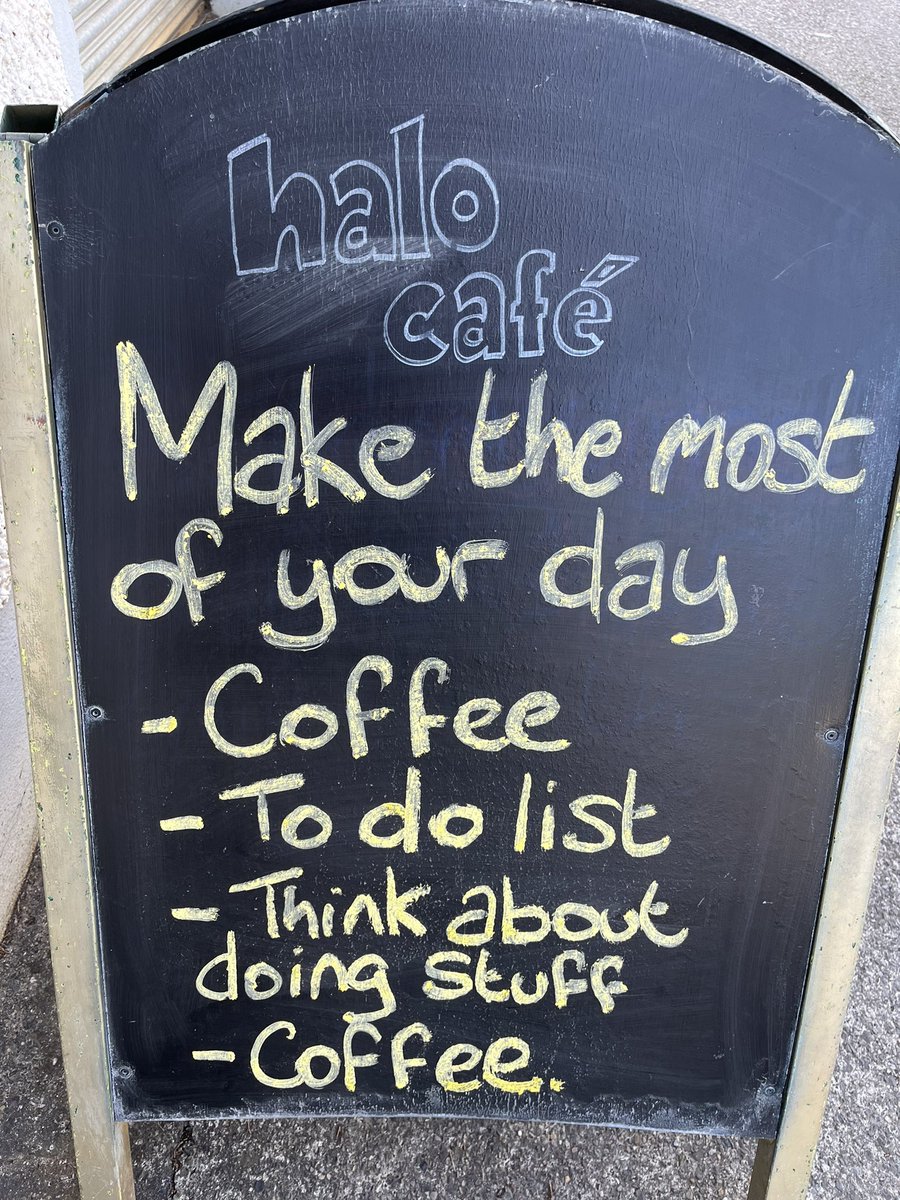 halo
café
Make the most
of your day
- Coffee
- To do list
- Think about
doing stuff
- Coffee.